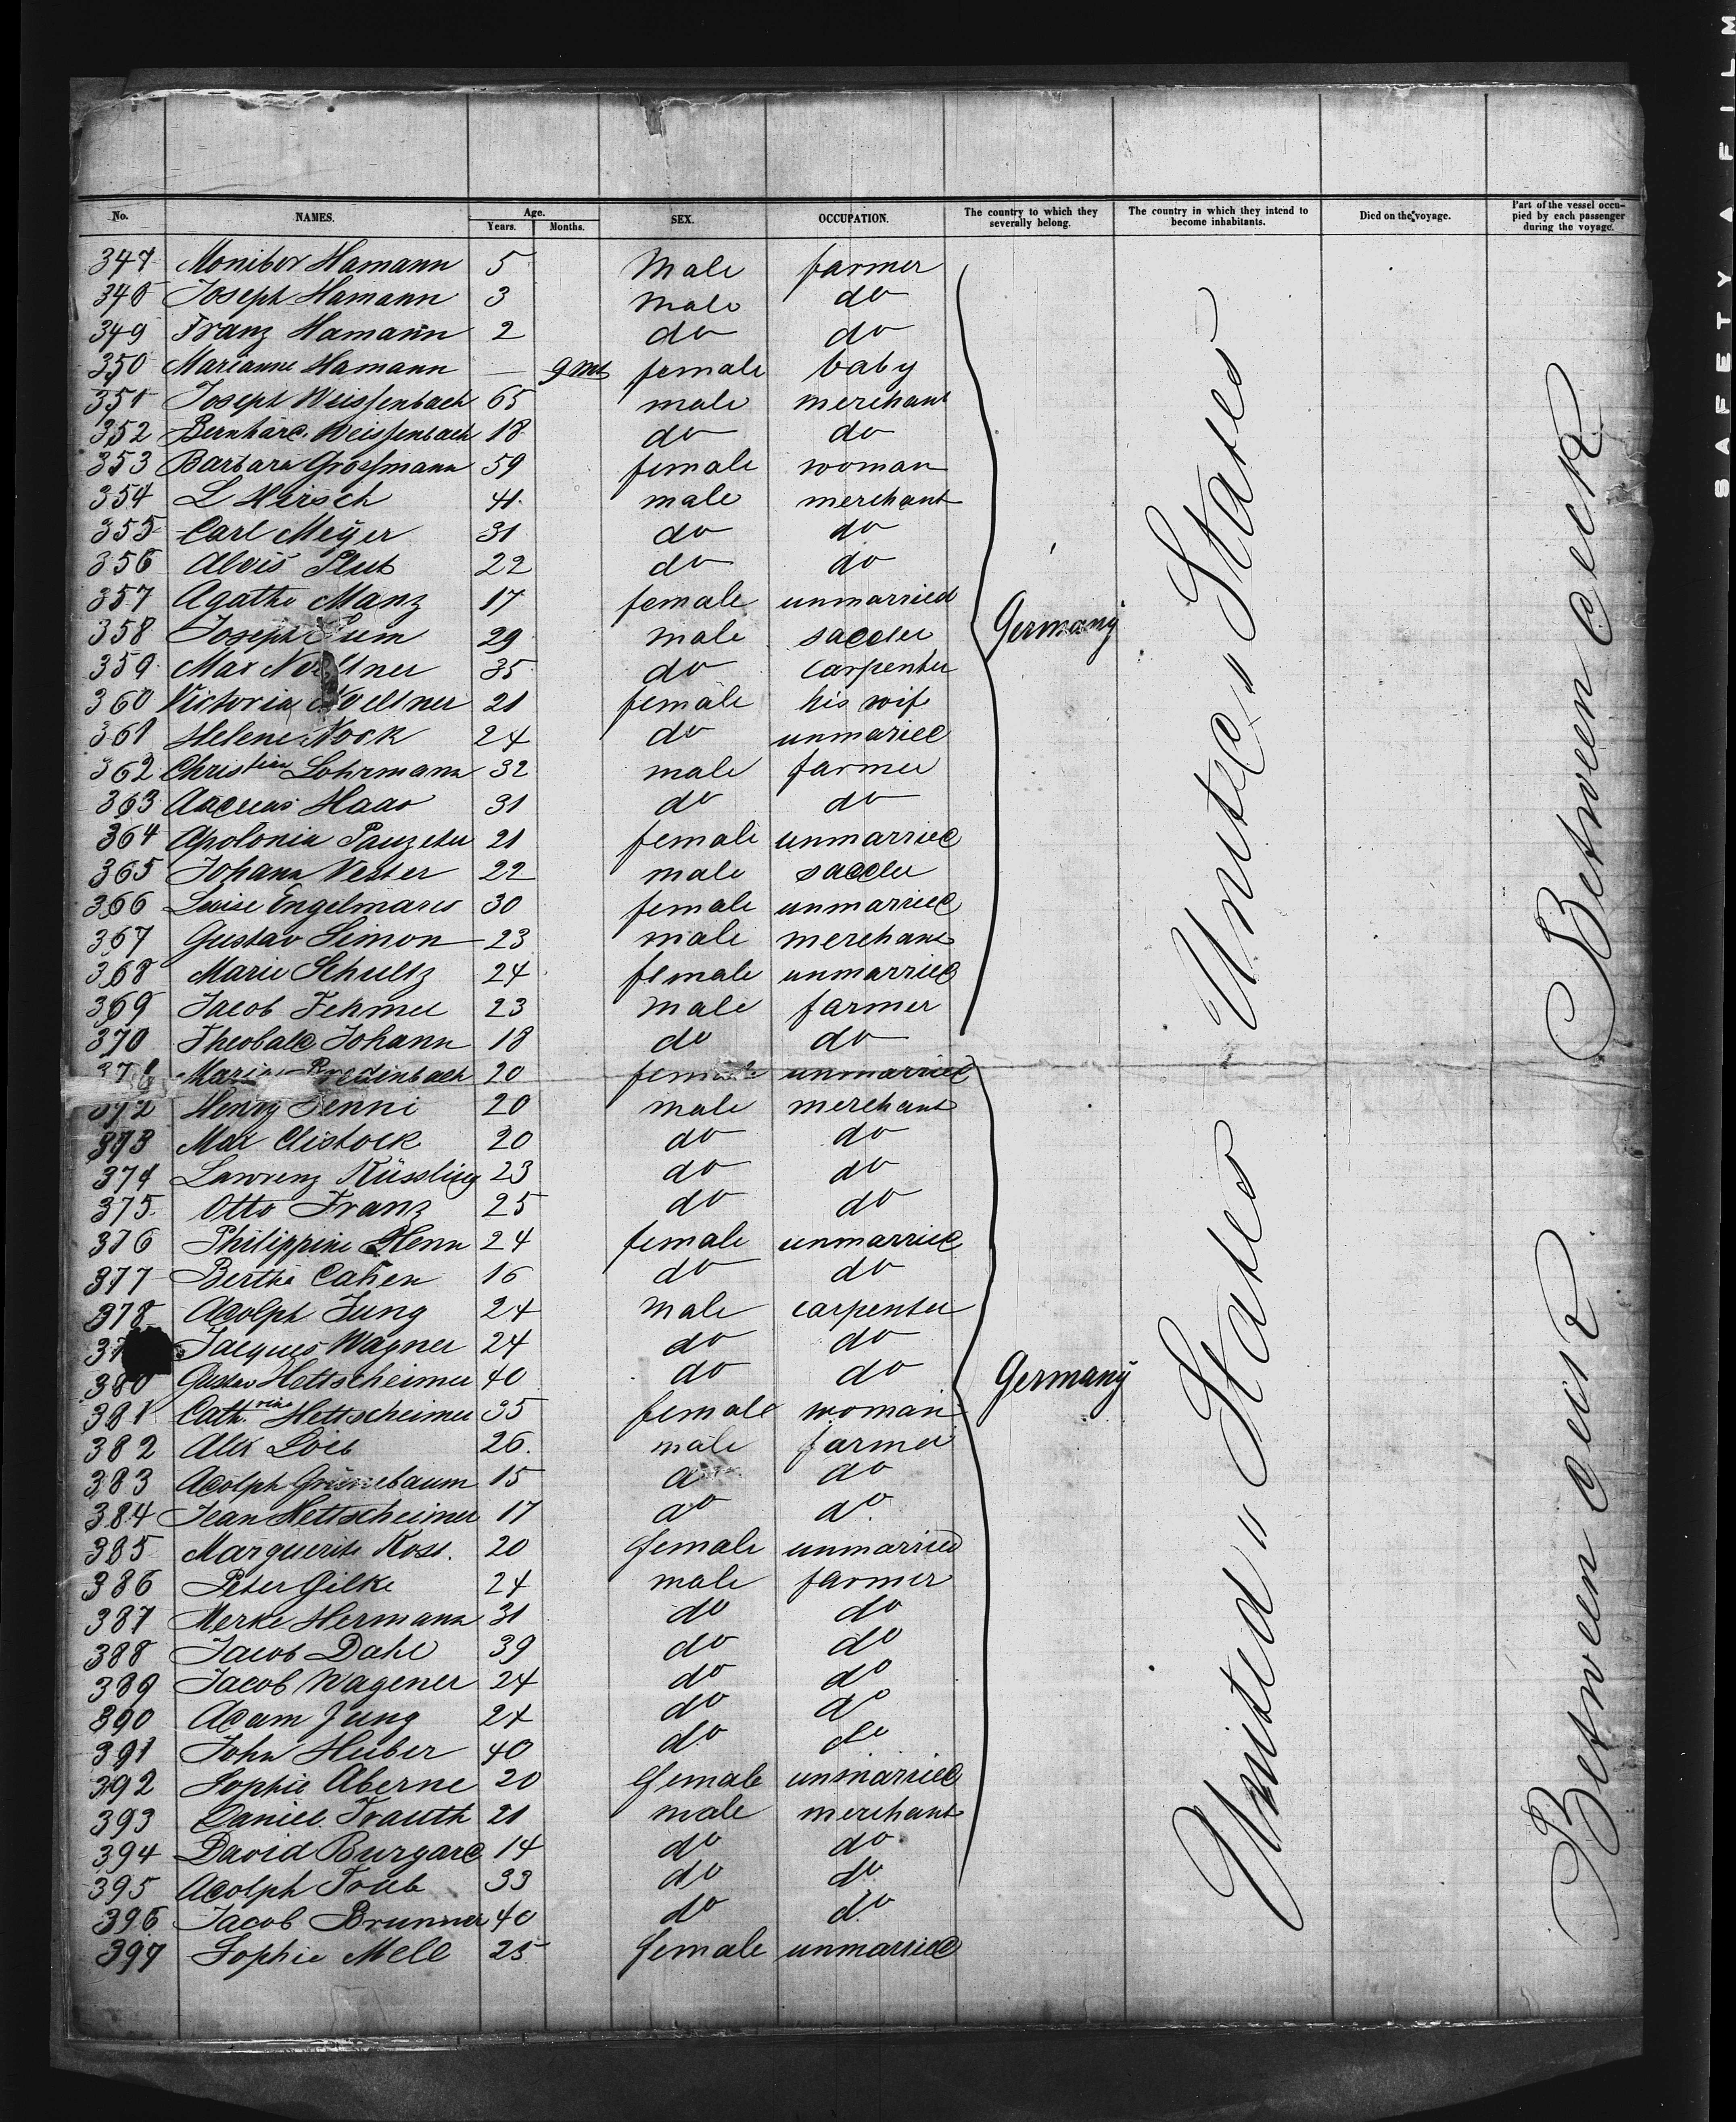 No. NAMES. Age. Years. Months. SEX. OCCUPATION. The country to which they severally belong. The country in which they intend to become inhabitants. Died on the voyage. Part of the vessel occupied by each passenger during the voyage.
347 Monibor Hamann 5 Male farmer
348 Joseph Hamann 3 Male do
349 Franz Hamann 2 do do
350 Marianne Hamann — 9 mts female baby
351 Joseph Weissenbach 65 male merchant
352 Bernhard Weissenbach 18 do do
353 Barbara Grossmann 59 female woman
354 L Hirsch 41 male merchant
355 Carl Meÿer 31 do do
356 Alois 22 do do
357 Agathe Manz 17 female unmarried
358 Joseph 29 male saddler
359 Max 35 do carpenter
360 Victoria 21 female his wife
361 Helene Nock 24 do unmaried
362 Christian Lohrmann 32 male farmer
363 Andreas Haas 31 do do
364 Apolonia 21 female unmarried
365 Johann Vester 22 male saddler
366 Louise 30 female unmarried
367 Gustav Simon 23 male merchant
368 Marie Schultz 24 female unmarried
369 Jacob Fehmer 23 male farmer
370 Theobald Johann 18 do do
Maria 20 female unmarried
372 Henry Jenni 20 male merchant
373 Max Clistock 20 do do
374 Lawrenz Rüssling 23 do do
375 Otto Franz 25 do do
376 Philippine Henn 24 female unmarried
377 Bertha Cahen 16 do do
378 Adolph Jung 24 male carpenter
Jacques Wagner 24 do do
380 Gustav Hettscheimer 40 do do
381 Cath.rine Hettscheimer 35 female woman
382 Alex Loeb 26 male farmer
383 Adolph Grünebaum 15 do
384 Jean Hettscheimer 17 do do
385 Marguerite Koss. 20 female unmarried
386 Peter Gilke 24 male farmer
387 Merke Hermann 31 do do
388 Jacob Dahl 39 do do
389 Jacob Wagener 24 do do
390 Adam Jung 24 do do
391 John Huber 40 do do
392 Sophie Aberne 20 female unmarried
393 Daniel Trauth 21 male merchant
394 David Burgard 14 do do
395 Adolph Traub 33 do do
396 Jacob Brunner 40 do do
397 Sophie Mell 25 female unmarried
Germanÿ
Germanÿ
United " States
United " States
Between deck
Between deck
SAFETY FILM